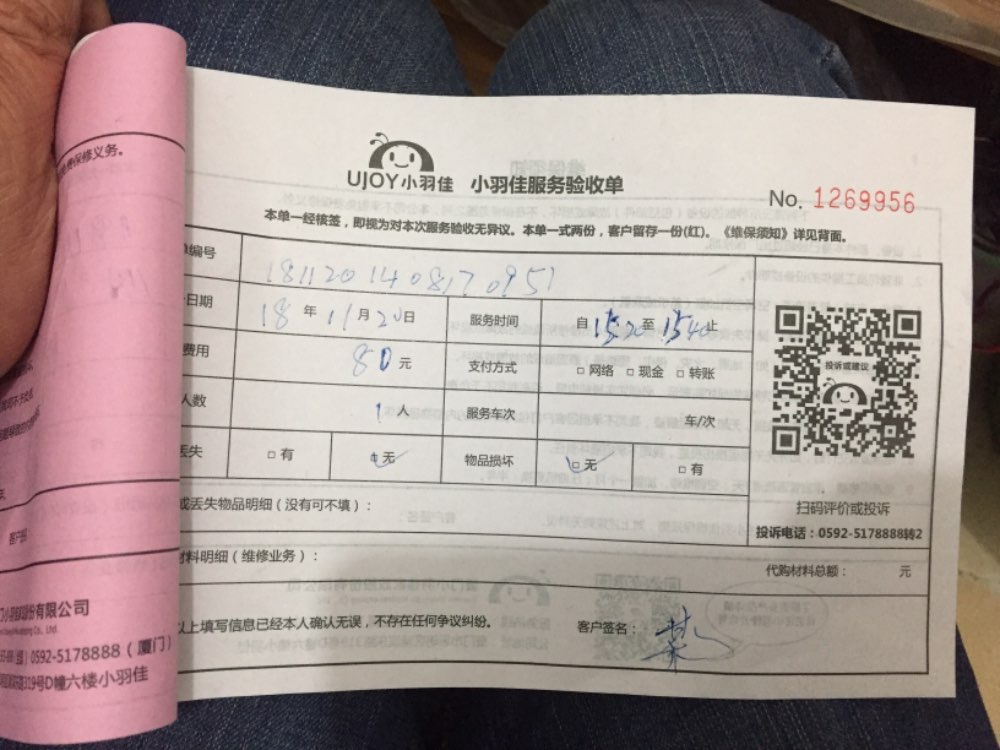 UJOY小羽佳 小羽佳服务验收单
No. 1269956
本单一经核签,即视为对本次服务验收无异议。本单一式两份,客户留存一份(红)。《维保须知》详见背面。
编号 1811201408170951
日期 18年11月20日 服务时间 自1520至1540止
费用 80元 支付方式 □网络 □现金 □转账
人数 1人 服务车次 车/次
丢失 □有 □无 物品损坏 □无 □有
投诉或建议
扫码评价或投诉
投诉电话:0592-5178888转2
或丢失物品明细(没有可不填):
材料明细(维修业务):
代购材料总额: 元
以上填写信息已经本人确认无误,不存在任何争议纠纷。
客户签名:
保修义务。
份有限公司
0592-5178888(厦门)
319号D幢六楼小羽佳